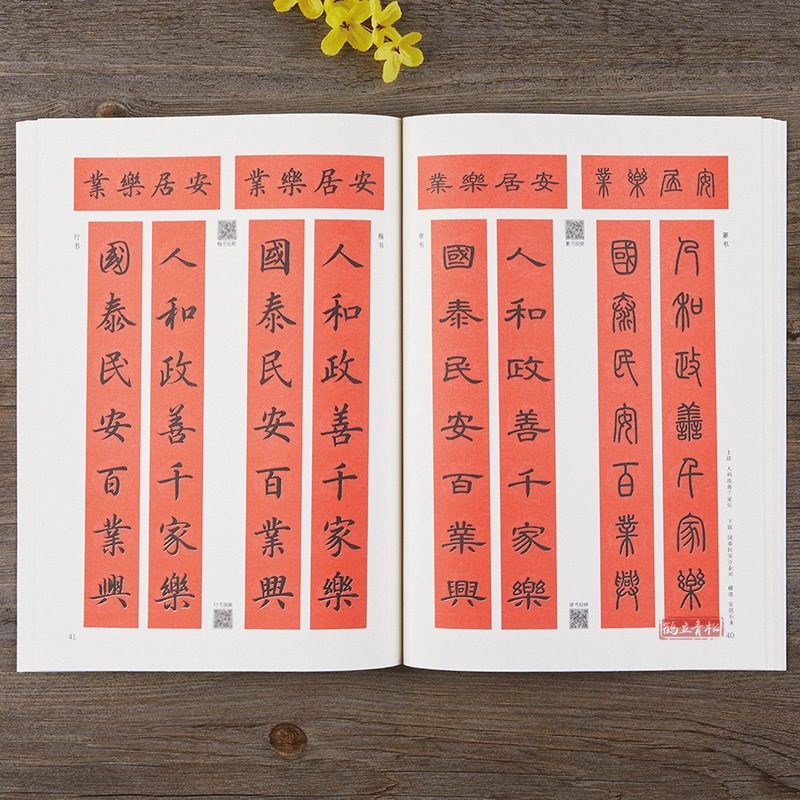 篆书
安居樂業
人和政善千家樂
國泰民安百業興
上联：人和政善千家乐 下联：国泰民安百业兴 横批：安居乐业
鹤立青松
40
隶书
安居樂業
人和政善千家樂
國泰民安百業興
楷书
安居樂業
人和政善千家樂
國泰民安百業興
行书
安居樂業
人和政善千家樂
國泰民安百業興
41